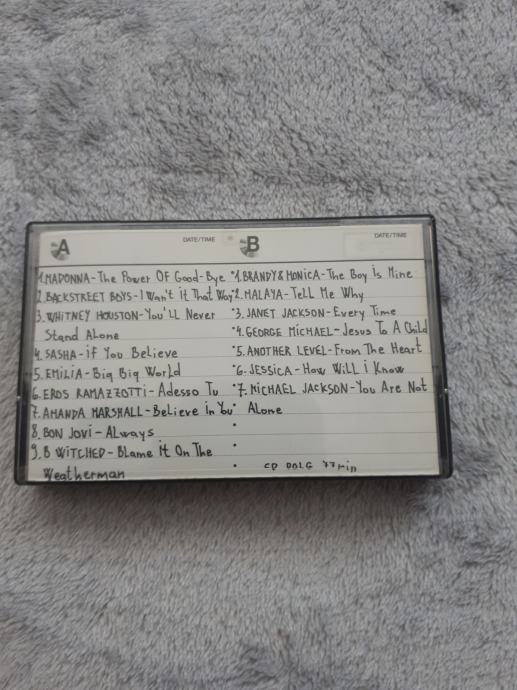 A DATE/TIME
1.MADONNA-The Power Of Good-Bye
2.BACKSTREET BOYS-I Wan't it That Way
3.WHITNEY HOUSTON-You'LL Never
Stand ALone
4.SASHA-if You BeLieve
5.EMILIA-Big Big WorLd
6.EROS RAMAZZOTTI-Adesso Tu
7.AMANDA MARSHALL-BeLieve in You
8.BON JOVI-ALways
9.B WITCHED-BLame it On The
Weatherman
B DATE/TIME
1.BRANDY&MONICA-The Boy is Mine
2.MALAYA-TeLL Me Why
3.JANET JACKSON-Every Time
4.GEORGE MICHAEL-Jesus To A ChiLd
5.ANOTHER LEVEL-From The Heart
6.JESSICA-How WiLL i Know
7.MICHAEL JACKSON-You Are Not
ALone
CD DOLG 77min